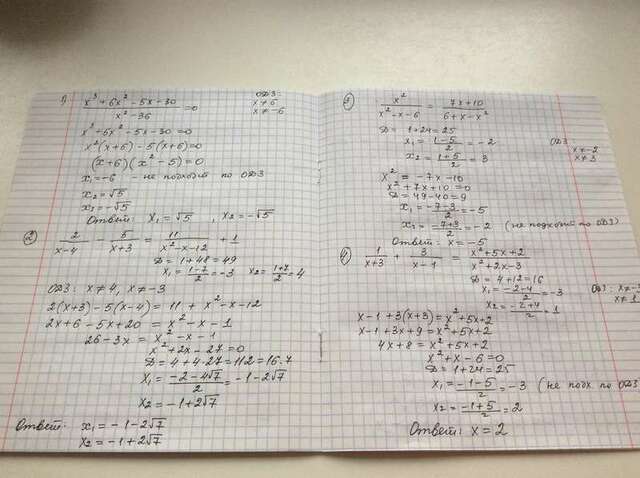 1) x³+6x²-5x+30 / x²-36 =0 ОДЗ: x≠6 x≠-6
x³+6x²-5x-30=0
x²(x+6)-5(x+6)=0
(x+6)(x²-5)=0
x₁=-6 - не подходит по ОДЗ
x₂=√5
x₃=-√5
Ответ: x₁=√5 , x₂=-√5
2) 2/(x-4) - 5/(x+3) = 11/(x²-x-12) + 1
D=1+48=49
x₁=(1-7)/2=-3 x₂=(1+7)/2=4
ОДЗ: x≠4, x≠-3
2(x+3)-5(x-4)=11+x²-x-12
2x+6-5x+20=x²-x-1
26-3x=x²-x-1
x²+2x-27=0
D=4+4·27=112=16·7
x₁=(-2-4√7)/2=-1-2√7
x₂=-1+2√7
Ответ: x₁=-1-2√7
x₂=-1+2√7
3) x²/(x²-x-6) = (7x+10)/(6+x-x²)
D=1+24=25
x₁=(1-5)/2=-2 ОДЗ
x₂=(1+5)/2=3 x≠-2 x≠3
x²=-7x-10
x²+7x+10=0
D=49-40=9
x₁=(-7-3)/2=-5
x₂=(-7+3)/2=-2 (не подходит по ОДЗ)
Ответ: x=-5
4) 1/(x+3) + 3/(x-1) = (x²+5x+2)/(x²+2x-3)
D=4+12=16
x₁=(-2-4)/2=-3 ОДЗ: x≠-3
x₂=(-2+4)/2=1 x≠1
x-1+3(x+3)=x²+5x+2
x-1+3x+9=x²+5x+2
4x+8=x²+5x+2
x²+x-6=0
D=1+24=25
x₁=(-1-5)/2=-3 (не подх по ОДЗ
x₂=(-1+5)/2=2
Ответ: x=2